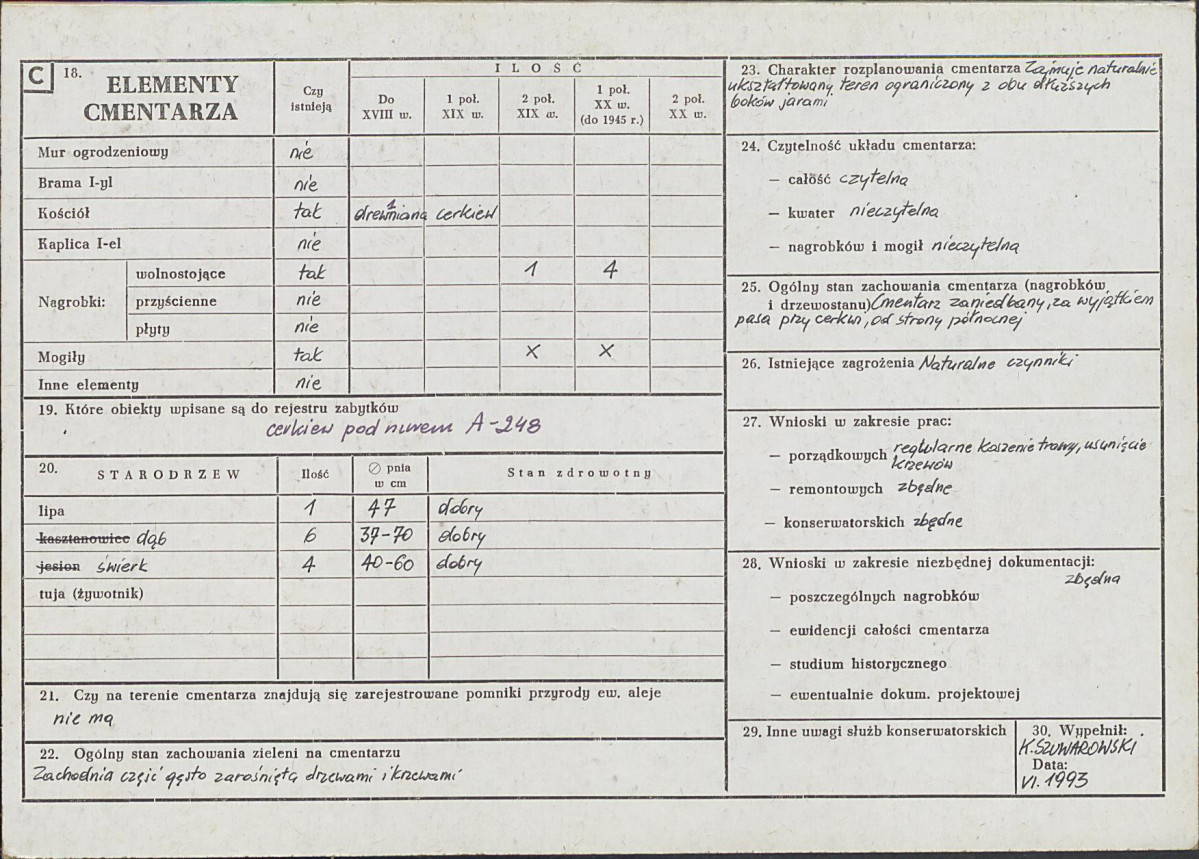 C 18. ELEMENTY CMENTARZA
Czy istnieją
I L O Ś Ć
Do XVIII w.
1 poł. XIX w.
2 poł. XIX w.
1 poł. XX w. (do 1945 r.)
2 poł. XX w.
Mur ogrodzeniowy nie
Brama I-yl nie
Kościół tak 1 drewniana cerkiew
Kaplica I-el nie
Nagrobki: wolnostojące tak 1 4
przyścienne nie
płyty nie
Mogiły tak X X
Inne elementy nie
19. Które obiekty wpisane są do rejestru zabytków
cerkiew pod nurem A-248
20. STARODRZEW Ilość ∅ pnia w cm Stan zdrowotny
lipa 1 47 dobry
kasztanowiec dąb 6 37-70 dobry
jesion świerk 4 40-60 dobry
tuja (żywotnik)
21. Czy na terenie cmentarza znajdują się zarejestrowane pomniki przyrody ew. aleje
nie ma
22. Ogólny stan zachowania zieleni na cmentarzu
Zachodnia część gęsto zarośnięta drzewami i krzewami
23. Charakter rozplanowania cmentarza Zajmuje naturalnie
ukształtowany teren ograniczony z obu dłuższych
boków jarami
24. Czytelność układu cmentarza:
— całość czytelna
— kwater nieczytelna
— nagrobków i mogił nieczytelna
25. Ogólny stan zachowania cmentarza (nagrobków
i drzewostanu) Cmentarz zaniedbany, za wyjątkiem
pasa przy cerkwi, od strony północnej
26. Istniejące zagrożenia Naturalne czynniki
27. Wnioski w zakresie prac:
— porządkowych regularne koszenie trawy, usunięcie
krzewów
— remontowych zbędne
— konserwatorskich zbędne
28. Wnioski w zakresie niezbędnej dokumentacji:
zbędna
— poszczególnych nagrobków
— ewidencji całości cmentarza
— studium historycznego
— ewentualnie dokum. projektowej
29. Inne uwagi służb konserwatorskich
30. Wypełnił:
K. SZUWAROWSKI
Data:
VI. 1993